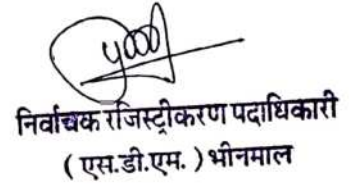 निर्वाचक रजिस्ट्रीकरण पदाधिकारी
( एस.डी.एम. ) भीनमाल